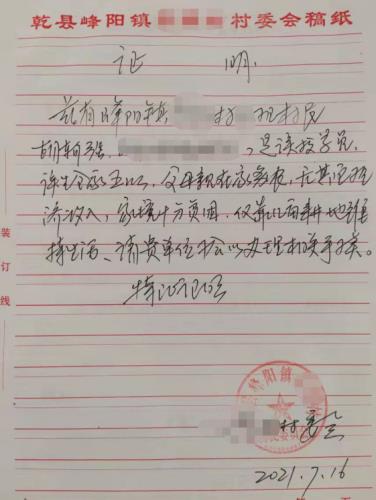 乾县峰阳镇 村委会稿纸
证 明
兹有峰阳镇 村 组村民
胡朝强, ,是该校学员,
该生全家五口,父母亲在家务农,无其它经
济收入,家境十分贫困,仅靠几亩耕地维
持生活、请贵单位给以办理相关手续。
特此证明
峰阳镇
村委会
2021.7.16
装订线